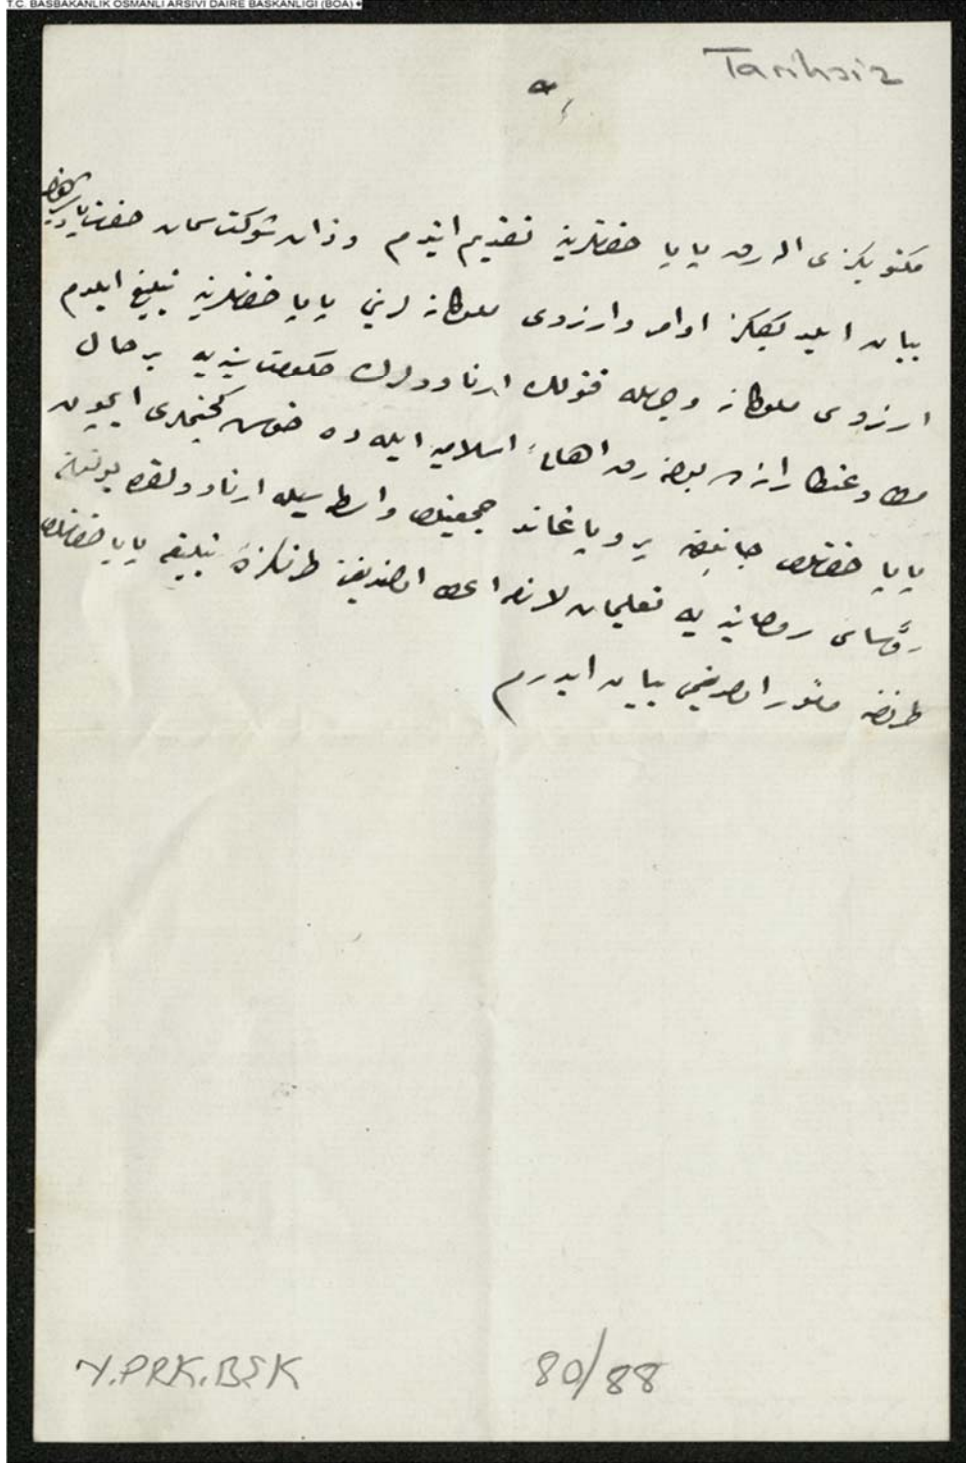 T.C. BAŞBAKANLIK OSMANLI ARŞİVİ DAİRE BAŞKANLIĞI (BOA)
Tarihsiz
مكتوبكزى پاپا حضرتلرينه تقديم ايتدم و ذات شوكتسمات حضرت پادشاهينك
بيان ايلديككز اوامر و ارزوى ملوكانه لرينى پاپا حضرتلرينه تبليغ ايلدم
ارزوى ملوكانه وجهله قتوليك ارناودلرك حكومت سنيه يه برحال
اهالئ اسلاميه ايله ده حسن كچنملرى ايچون
پاپا حضرتلرى جانبندن پروپاغاند جمعيتى واسطه سيله ارناودلقده بولنان
رؤساى روحانيه يه تعليمات لازمه اعطا اولنديغنى طرفكزه تبليغه پاپا حضرتلرى
طرفندن مأمور اولديغمى بيان ايدرم
Y.PRK.BŞK 80/88